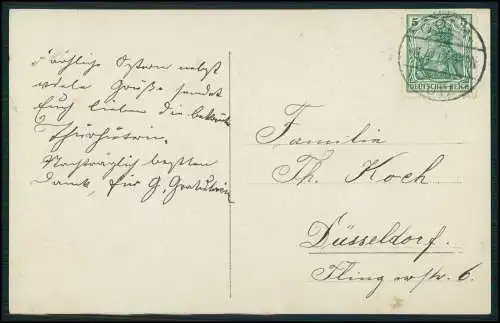 Fröhliche Ostern nebst
viele Grüße sendet
Euch lieben die
Nachträglich besten
Dank, für G. Gratulation
5
DEUTSCHES REICH
Familie
Th. Koch
Düsseldorf.
Flingerstr. 6.